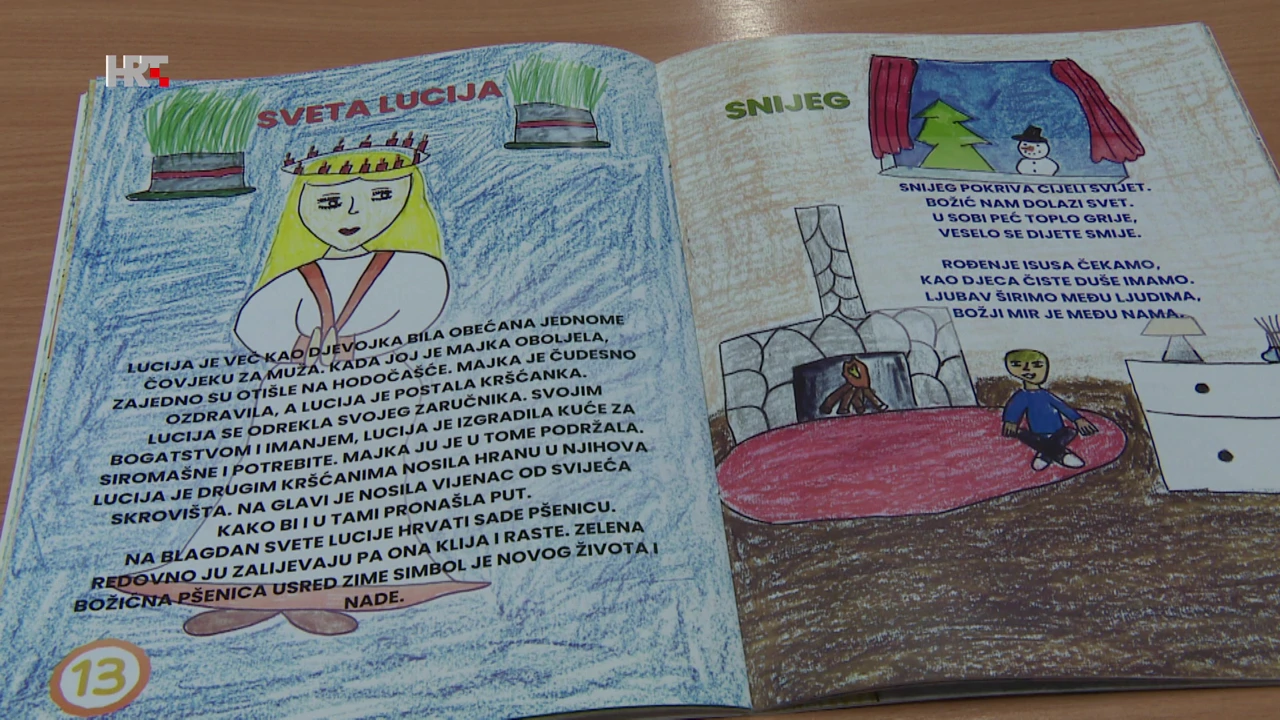 HRT
SVETA LUCIJA
LUCIJA JE VEĆ KAO DJEVOJKA BILA OBEĆANA JEDNOME
ČOVJEKU ZA MUŽA. KADA JOJ JE MAJKA OBOLJELA,
ZAJEDNO SU OTIŠLE NA HODOČAŠĆE. MAJKA JE ČUDESNO
OZDRAVILA, A LUCIJA JE POSTALA KRŠĆANKA.
LUCIJA SE ODREKLA SVOJEG ZARUČNIKA. SVOJIM
BOGATSTVOM I IMANJEM, LUCIJA JE IZGRADILA KUĆE ZA
SIROMAŠNE I POTREBITE. MAJKA JU JE U TOME PODRŽALA.
LUCIJA JE DRUGIM KRŠĆANIMA NOSILA HRANU U NJIHOVA
SKROVIŠTA. NA GLAVI JE NOSILA VIJENAC OD SVIJEĆA
KAKO BI I U TAMI PRONAŠLA PUT.
NA BLAGDAN SVETE LUCIJE HRVATI SADE PŠENICU.
REDOVNO JU ZALIJEVAJU PA ONA KLIJA I RASTE. ZELENA
BOŽIĆNA PŠENICA USRED ZIME SIMBOL JE NOVOG ŽIVOTA I
NADE.
13
SNIJEG
SNIJEG POKRIVA CIJELI SVIJET.
BOŽIĆ NAM DOLAZI SVET.
U SOBI PEĆ TOPLO GRIJE,
VESELO SE DIJETE SMIJE.
ROĐENJE ISUSA ČEKAMO,
KAO DJECA ČISTE DUŠE IMAMO.
LJUBAV ŠIRIMO MEĐU LJUDIMA,
BOŽJI MIR JE MEĐU NAMA.